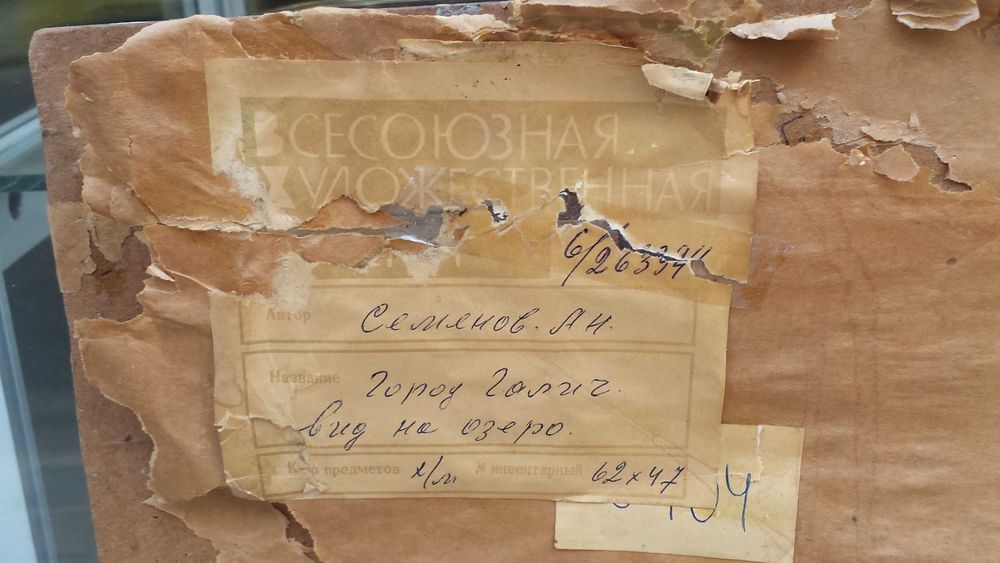 ВСЕСОЮЗНАЯ
ХУДОЖЕСТВЕННАЯ
Автор Семенов. Ан.
Название Город Галич.
вид на озеро.
К-во предметов х/м № инвентарный 62x47